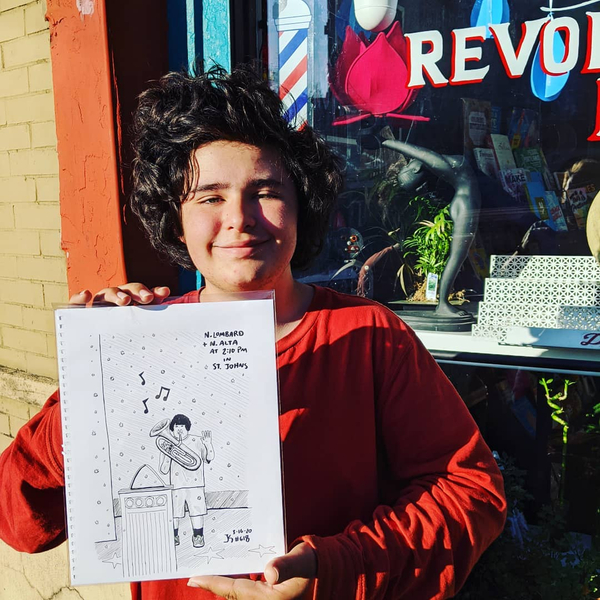 REVOL
N. LOMBARD
+ N. ALTA
AT 2:10 PM
IN
ST. JOHNS
5-16-20